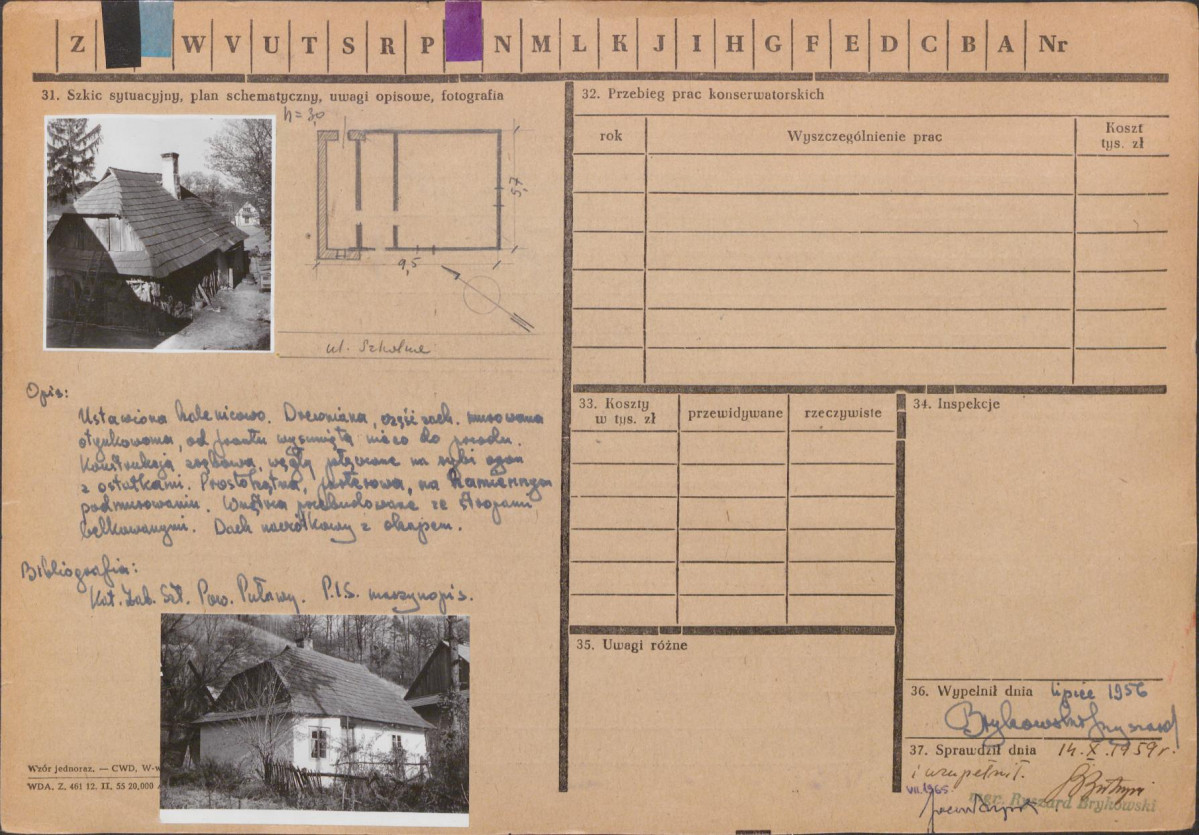 Z W V U T S R P N M L K J I H G F E D C B A Nr
31. Szkic sytuacyjny, plan schematyczny, uwagi opisowe, fotografia
h = 3,0
5,7
9,5
ul. Szkolna
Opis:
Ustawiona kalenicowo. Drewniana, część zach. murowana
otynkowana, od frontu wysunięta nieco do przodu.
Konstrukcja zrębowa, węgły łączone na rybi ogon
z ostatkami. Prostokątna, parterowa, na kamiennym
podmurowaniu. Wnętrza przebudowane ze stropami
belkowanymi. Dach naczółkowy z okapem.
Bibliografia:
Kat. Zab. Szt. Pow. Puławy. P.I.S. maszynopis.
Wzór jednoraz. — CWD, W-w
WDA, Z. 461 12. II. 55 20,000
32. Przebieg prac konserwatorskich
rok
Wyszczególnienie prac
Koszt
tys. zł
33. Koszty
w tys. zł
przewidywane
rzeczywiste
34. Inspekcje
35. Uwagi różne
36. Wypełnił dnia lipiec 1956
Brykowski Ryszard
37. Sprawdził dnia 14.X.1959r.
i uzupełnił.
VII.1965
mgr. Ryszard Brykowski